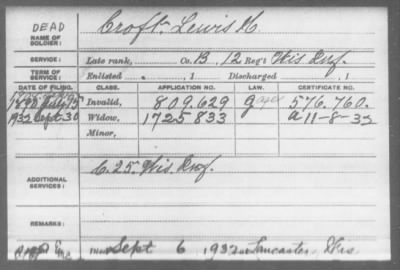 DEAD
NAME OF SOLDIER: Croft Lewis H
SERVICE: Late rank, Co. B. 12 Reg't Wis Inf.
TERM OF SERVICE: Enlisted , 1 Discharged , 1
DATE OF FILING. CLASS. APPLICATION NO. LAW. CERTIFICATE NO.
1890 July 15 Invalid, 809.629 576.760.
1932 Sept. 30 Widow, 1725833 A 11-8-32
Minor,
ADDITIONAL SERVICES: C. 25. Wis. Inf.
REMARKS:
Died Sept 6, 1932 at Lancaster, Wis